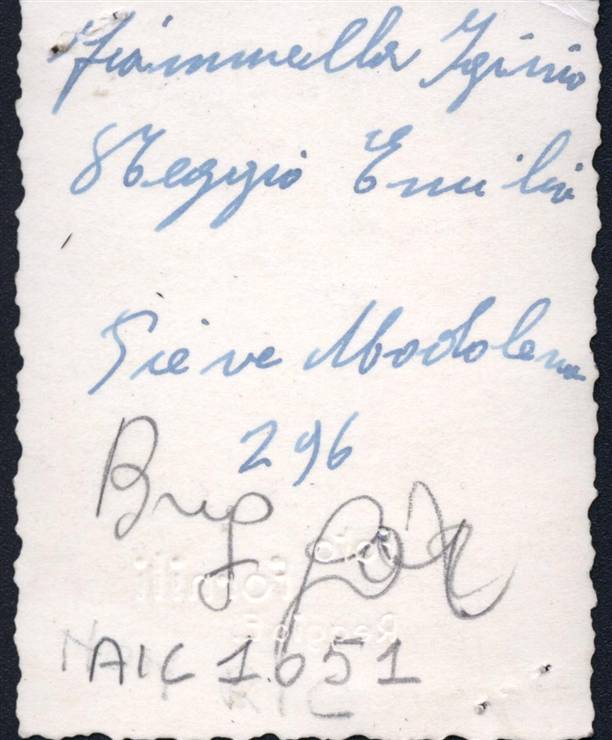 Giammella Iginio
Reggio Emilia
Pieve Modolena
296
Brig
Foto
Fornili
Reggio E.
AIC 1651